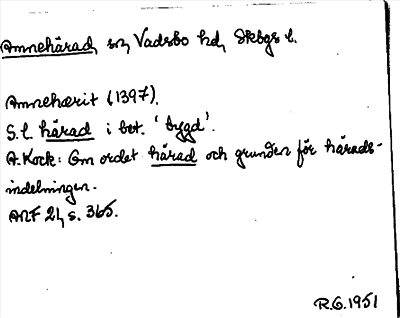 Amnehärad, sn, Vadsbo hd, Skbgs l.
Amnehærit (1397).
S. l. härad i bet. 'bygd'.
A. Kock: Om ordet härad och grunden för härads-
indelningen.
ANF 21, s. 365.
R.G. 1951